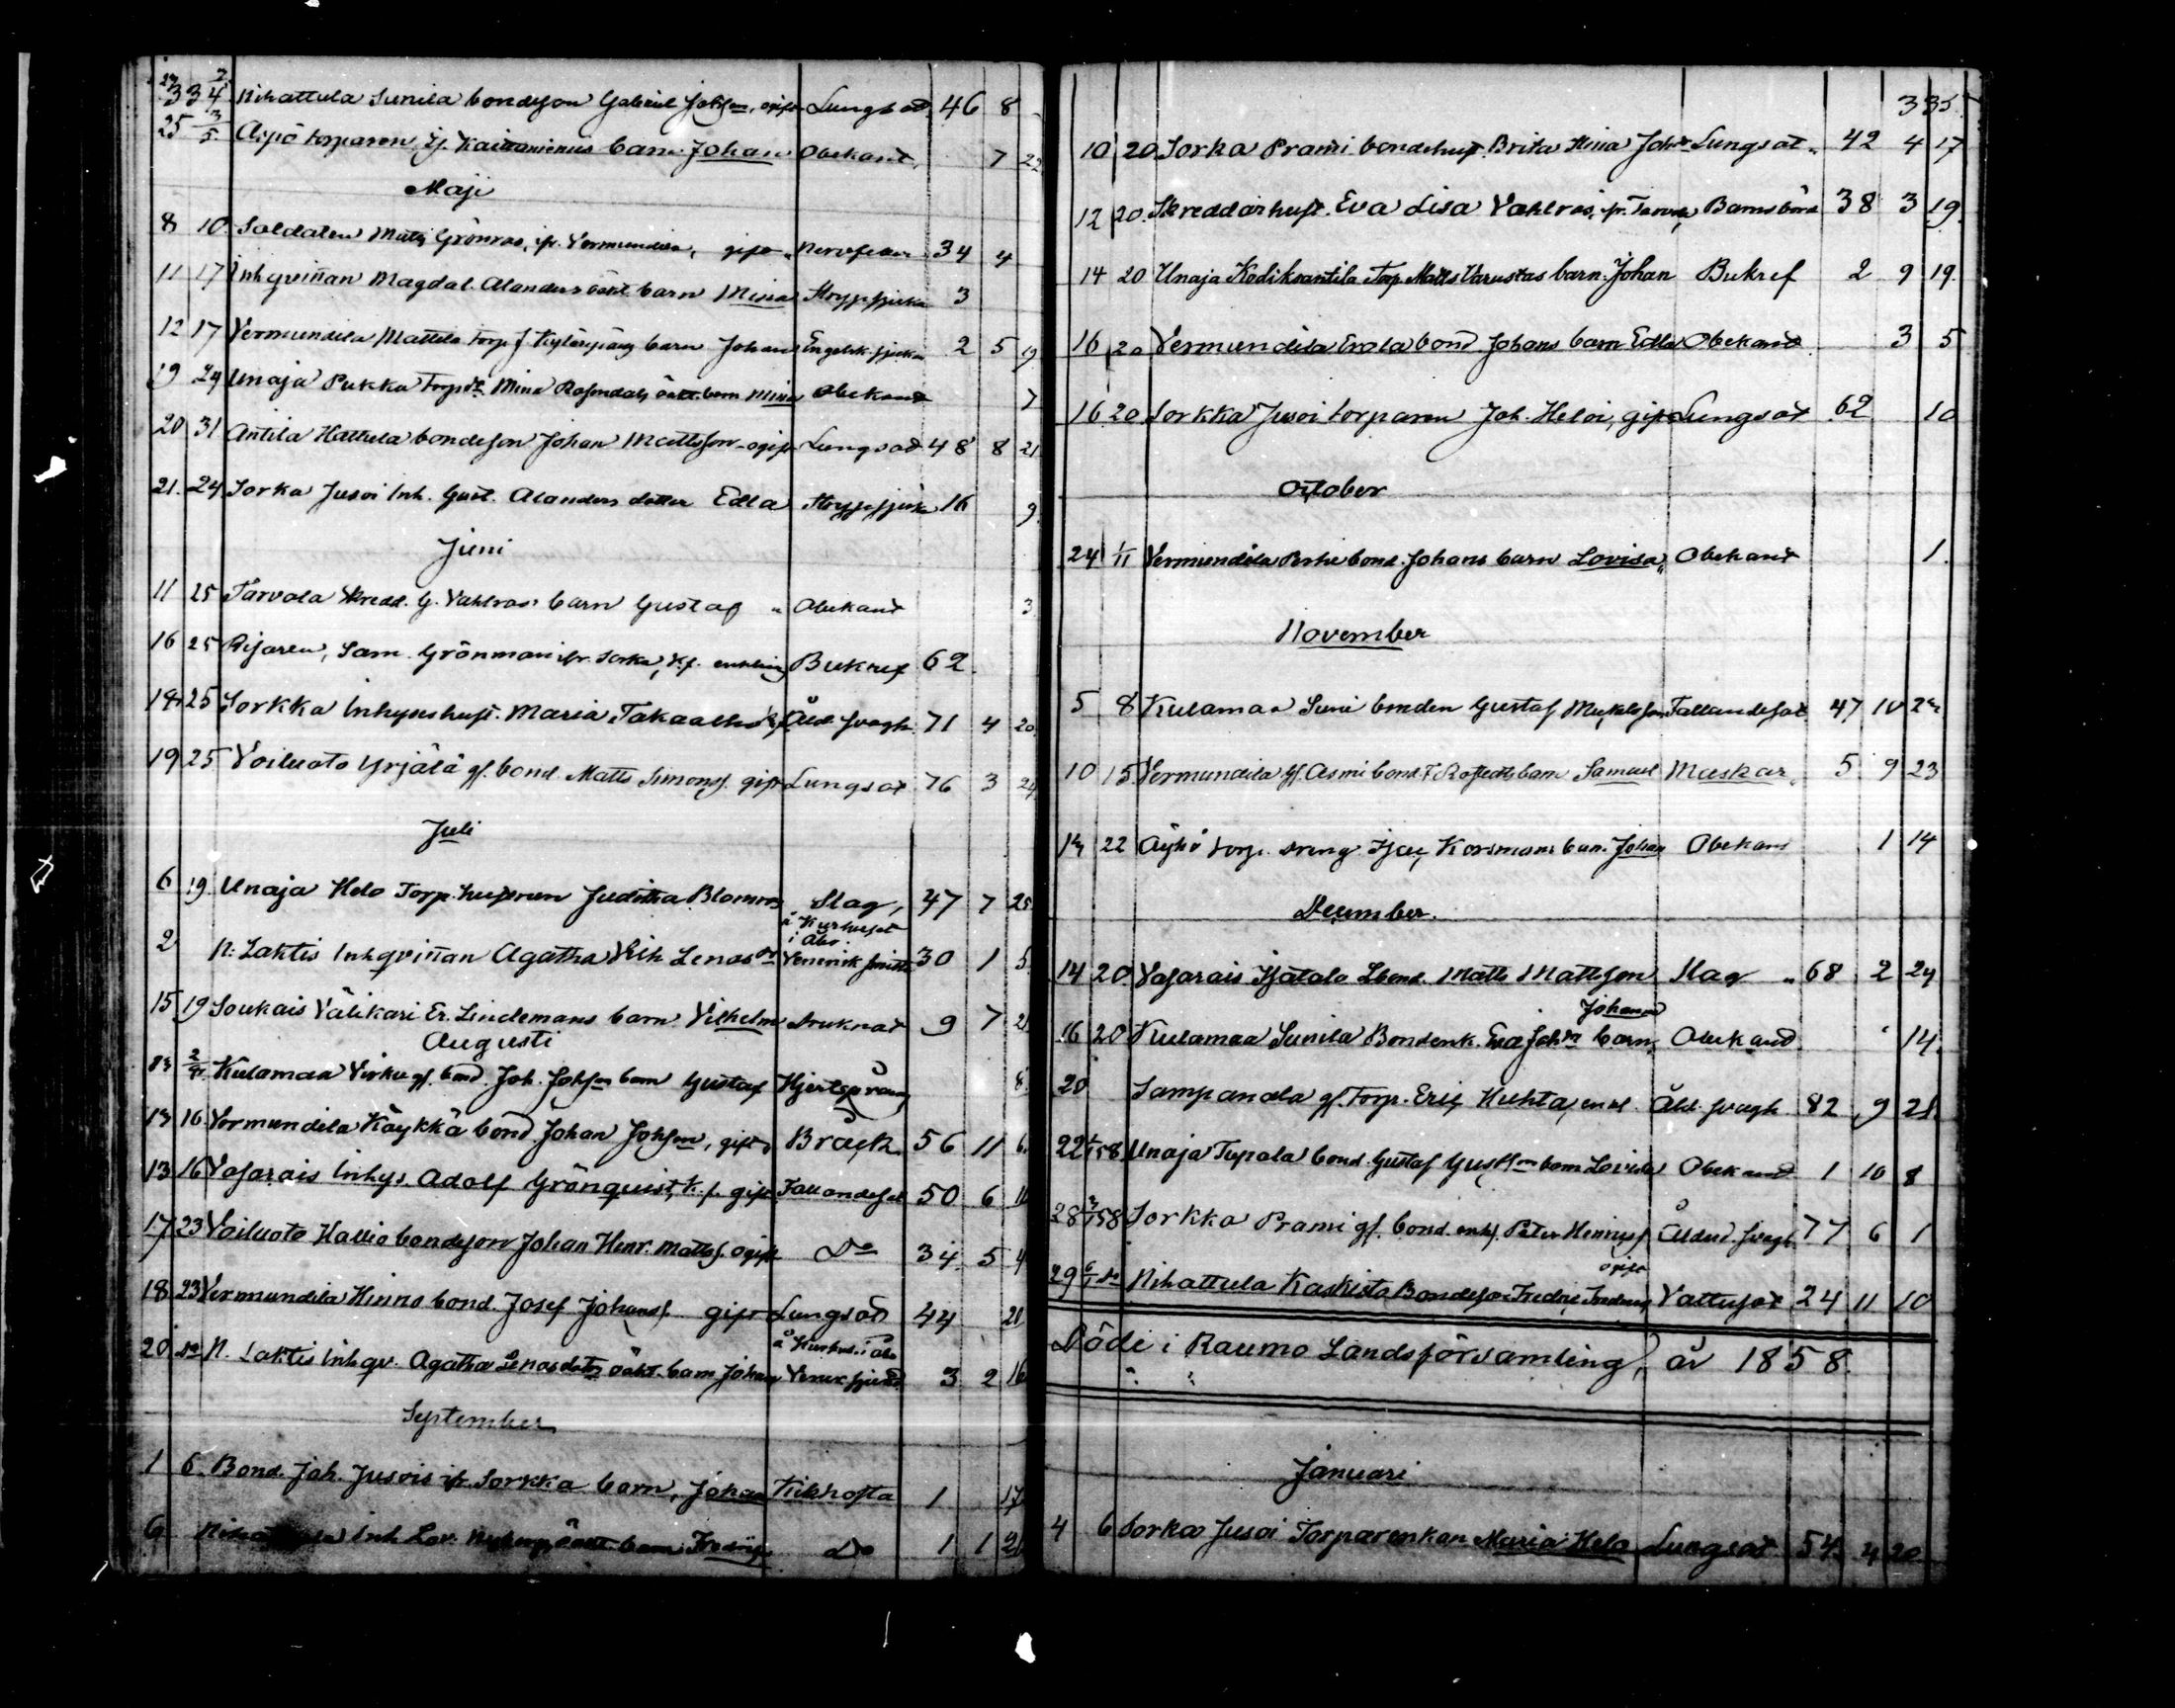 334 Nihattula Sunila bondeson Gabriel Johsson, ogift Lungsot 46 8
25 3/5 Äijpö torparen Kaitaniemus barn Johan Obekant 7 22
Maji
8 10 Soldaten Matts Grönros, fr. Vermundila, gift Nervfeber 34 4
11 17 Inhqviñan Magdal. Alanders oäkt barn Mina Strypsjuka 3
12 17 Vermundila Mattila Torp. J. barn Johans Engelsk sjuka 2 5 19
19 24 Unaja Pukka Torpdr Mina Rosendals oäkt. barn Mina Obekand 7
20 31 Antila Hattula bondeson Johan Mattsson ogift Lungsot 48 8 21
21 24 Sorka Jusoi Inh. Gust. Alanders dotter Edla Stryppsjuka 16 9
Juni
11 25 Tarvola Skredd. G. Vahlros barn Gustaf Obekant 3
16 25 Sam. Grönman fr. Sorka, enkling Bukref 62
14 25 Sorkka Inhyseshust. Maria Takaalho Åld. svagh. 71 4 20
19 25 Voiluoto Yrjälä gf. bond. Matts Simonss. gift Lungsot 76 3 24
Juli
6 19 Unaja Helo Torp. hustrun Juditha Blomros Slag, 47 7 25
å Kurhuset i Åbo.
2 N. Laktis Inhqviñan Agatha Lenasdr Venerisk smitta 30 1 5
15 19 Soukais Välikari Er. Lindemans barn Vilhelm Druknat 9 7 2
Augusti
2/8 Kulamaa Virku gf. bond. Joh. Johsson barn Gustaf Hjertsprång 8
13 16 Vermundila Käykkä bond Johan Johsson, gift Bråck 56 11 6
13 16 Vasarais Inhys. Adolf Grönquist, gift Fallandesot 50 6 11
17 23 Voiluoto Hallio bondeson Johan Henr. Mattss. ogift Do 34 5 4
18 23 Vermundila Hinno bond. Josef Johanss. gift Lungsot 44 21
å Kurhus. i Åbo
20 Do N. Laktis Inhqv. Agatha Lenasdotrs oäkt. barn Johan Vener sjukd 3 2 16
September
1 6 Bond. Joh. Jusois fr. Sorkka barn, Johan Kikhosta 1 17
6 Inh. Lov. oäkt barn Fredrik Do 1 1 2
335
10 20 Sorka Prami bondehust. Brita Stina Johdr Lungsot 42 4 17
12 20 Skreddarhust. Eva Lisa Vahlros, fr. Tarvola, Barnsbörd 38 3 19
14 20 Unaja Kodikvantila Torp. Matts Varustas barn Johan Bukref 2 9 19
16 20 Vermundila Erola bond Johans barn Edla Obekand 3 5
16 20 Sorkka Jusoi torparen Joh. Heloi, gift Lungsot 62 10
October
24 1/11 Vermundila Perhe bond. Johans barn Lovisa Obekant 1
November
5 8 Kulamaa Suni bonden Gustaf Mickelsson Fallandesot 47 10
10 15 Vermundila gf. Asmi bond. barn Samuel Maskar 5 9 23
14 22 Äyhö torp. dreng. Isac Korsmans barn Johan Obekant 1 14
December
14 20 Vasarais Isotalo Lbond. Matts Mattsson Slag 68 2 24
Johanna
16 20 Kulamaa Sunila Bondenk. Eva Johdr barn Obekand 14
20 Sampanala gf. Torp. Eric Kuhta, enkl. Åld. svagh 82 9 21
22 1/58 Unaja Tupala bond. Gustaf Gustsson barn Lovisa Obekand 1 10 8
28 3/1 58 Sorkka Prami gf. bond. enkl. Peter Henrikss Ålderd. svagh. 77 6 1
ogift
29 6/1 Do Nihattula Kaskisto Bondeson Fredric Fredricss Vattusot 24 11 10
Döde i Raumo Landsförsamling, år 1858.
Januari
4 6 Sorka Jusoi Torparenkan Maria Helo Lungsot 54 4 20